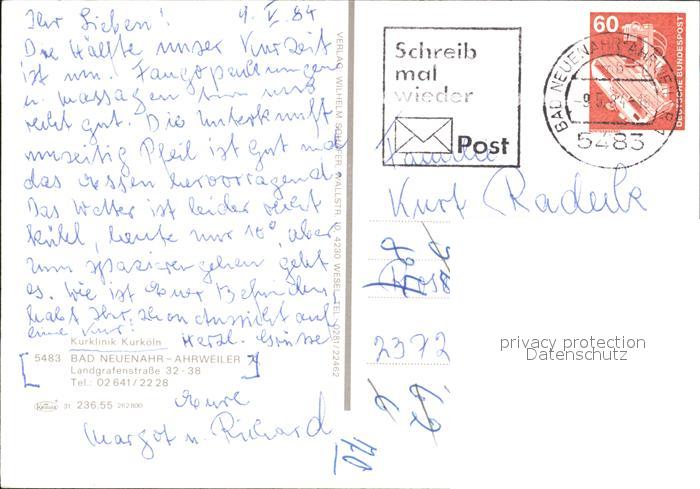 9. V. 84
Ihr Lieben!
Die Hälfte unser Kurzeit
ist um. Fangopackungen
u. Massagen tun uns
recht gut. Die Unterkunft
ist gut und
das Essen hervorragend.
Das Wetter ist leider recht
kühl, heute nur 10° aber
zum spazieren gehen geht
es. Wie ist Euer Befinden
habt Ihr schon Aussicht auf
eine Kur?
Herzl. Grüsse
Kurklinik Kurköln
5483 BAD NEUENAHR-AHRWEILER
Landgrafenstraße 32-38
Tel.: 02641/2228
31 236,55 262 800
Eure
Margot u. Richard
VERLAG WILHELM WALLSTR. 10, 4230 WESEL, TEL. 0281/22462
Schreib
mal
wieder
Post
60
DEUTSCHE BUNDESPOST
BAD NEUENAHR-AHRWEILER
5483
Familie
Kurt
2372
privacy protection
Datenschutz